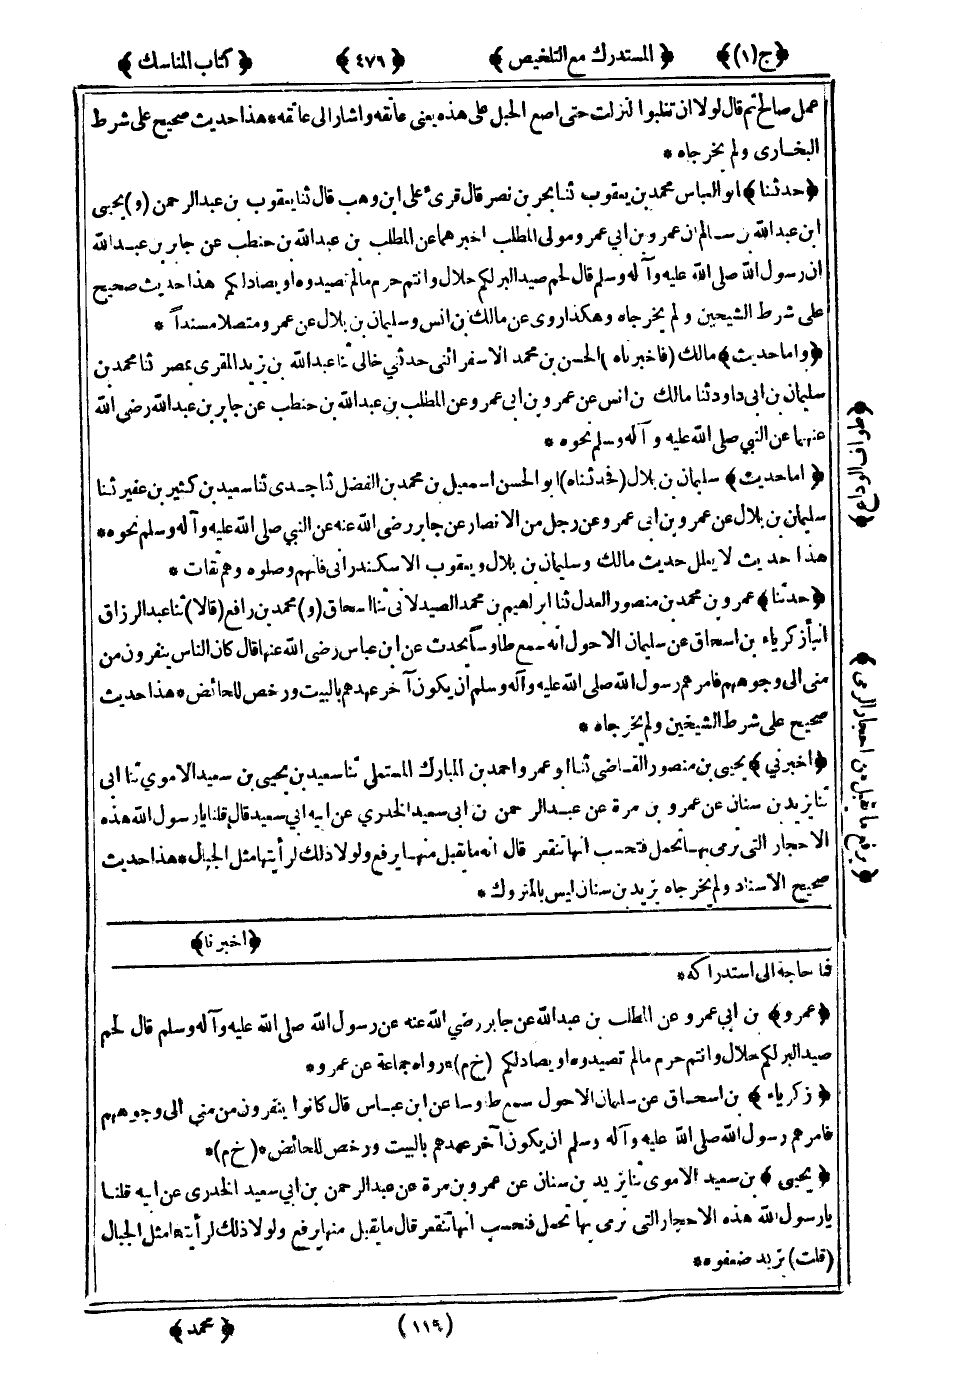 ﴿ج(١)﴾ ﴿المستدرك مع التلخيص﴾ ﴿٤٧٦﴾ ﴿كتاب المناسك﴾
عمل صالح ثم قال لولا ان تغلبوا لنزلت حتى اضع الحبل على هذه يعنى عاتقه واشار الى عاتقه * هذا حديث صحيح على شرط
البخارى ولم يخرجاه *
﴿حدثنا﴾ ابو العباس محمد بن يعقوب ثنا بحر بن نصر قال قرىء على ابن وهب قال ثنا يعقوب بن عبد الرحمن (و) يحيى
ابن عبد الله بن سالم ان عمرو بن ابي عمرو مولى المطلب اخبرهما عن المطلب بن عبد الله بن حنطب عن جابر بن عبد الله
ان رسول الله صلى الله عليه وآله وسلم قال لحم صيد البر لكم حلال وانتم حرم مالم تصيدوه او يصاد لكم هذا حديث صحيح
على شرط الشيخين ولم يخرجاه وهكذا روى عن مالك بن انس وسليمان بن بلال عن عمرو متصلا مسنداً *
﴿واما حديث﴾ مالك (فاخبرناه) الحسن بن محمد الاسفرائنى حدثني خالى ثنا عبد الله بن زيد المقرى بمصر ثنا محمد بن
سليمان بن ابى داود ثنا مالك بن انس عن عمرو بن ابى عمرو عن المطلب بن عبد الله بن حنطب عن جابر بن عبد الله رضى الله
عنهما عن النبي صلى الله عليه وآله وسلم نحوه *
﴿اما حديث﴾ سليمان بن بلال (فحدثناه) ابو الحسن اسمعيل بن محمد بن الفضل ثنا جدى ثنا سعيد بن كثير بن عفير ثنا
سليمان بن بلال عن عمرو بن ابى عمرو عن رجل من الانصار عن جابر رضى الله عنه عن النبي صلى الله عليه وآله وسلم نحوه *
هذا حديث لا يعلل حديث مالك وسليمان بن بلال ويعقوب الاسكندرانى فانهم وصلوه وهم ثقات *
﴿حدثنا﴾ عمرو بن محمد بن منصور العدل ثنا ابراهيم بن محمد الصيدلانى ثنا اسحاق (و) محمد بن رافع (قالا) ثنا عبد الرزاق
انبأ زكرياء بن اسحاق عن سليمان الاحول انه سمع طاوساً يحدث عن ابن عباس رضى الله عنهما قال كان الناس ينفرون من
منى الى وجوههم فامرهم رسول الله صلى الله عليه وآله وسلم ان يكون آخر عهدهم بالبيت ورخص للحائض * هذا حديث
صحيح على شرط الشيخين ولم يخرجاه *
﴿اخبرني﴾ يحيى بن منصور القاضى ثنا ابو عمرو احمد بن المبارك المستملي ثنا سعيد بن يحيى بن سعيد الاموي ثنا ابى
ثنا يزيد بن سنان عن عمرو بن مرة عن عبد الرحمن بن ابى سعيد الخدري عن ابيه ابي سعيد قال قلنا يارسول الله هذه
الاحجار التى ترمى بها تحمل فتحسب انها تنقعر قال انه ما يقبل منها يرفع ولولا ذلك لرأيتها مثل الجبال * هذا حديث
صحيح الاسناد ولم يخرجاه يزيد بن سنان ليس بالمتروك *
﴿اخبرنا﴾
فما حاجة الى استدراكه *
﴿عمرو﴾ بن ابي عمرو عن المطلب بن عبد الله عن جابر رضي الله عنه عن رسول الله صلى الله عليه وآله وسلم قال لحم
صيد البر لكم حلال وانتم حرم مالم تصيدوه او يصاد لكم (خ م) * رواه جماعة عن عمرو *
﴿زكرياء﴾ بن اسحاق عن سليمان الاحول سمع طاوسا عن ابن عباس قال كانوا ينفرون من منى الى وجوههم
فامرهم رسول الله صلى الله عليه وآله وسلم ان يكون آخر عهدهم بالبيت ورخص للحائض * (خ م) *
﴿يحيى﴾ بن سعيد الاموى ثنا يزيد بن سنان عن عمرو بن مرة عن عبد الرحمن بن ابي سعيد الخدرى عن ابيه قلنا
يارسول الله هذه الاحجار التى نرمى بها تحمل فنحسب انها تنقعر قال ما يقبل منها يرفع ولولا ذلك لرأيتها مثل الجبال
(قلت) يزيد ضعفوه *
﴿طواف الوداع﴾
﴿رفع ما يقبل من احجار الرمى﴾
(١١٩) ﴿محمد﴾